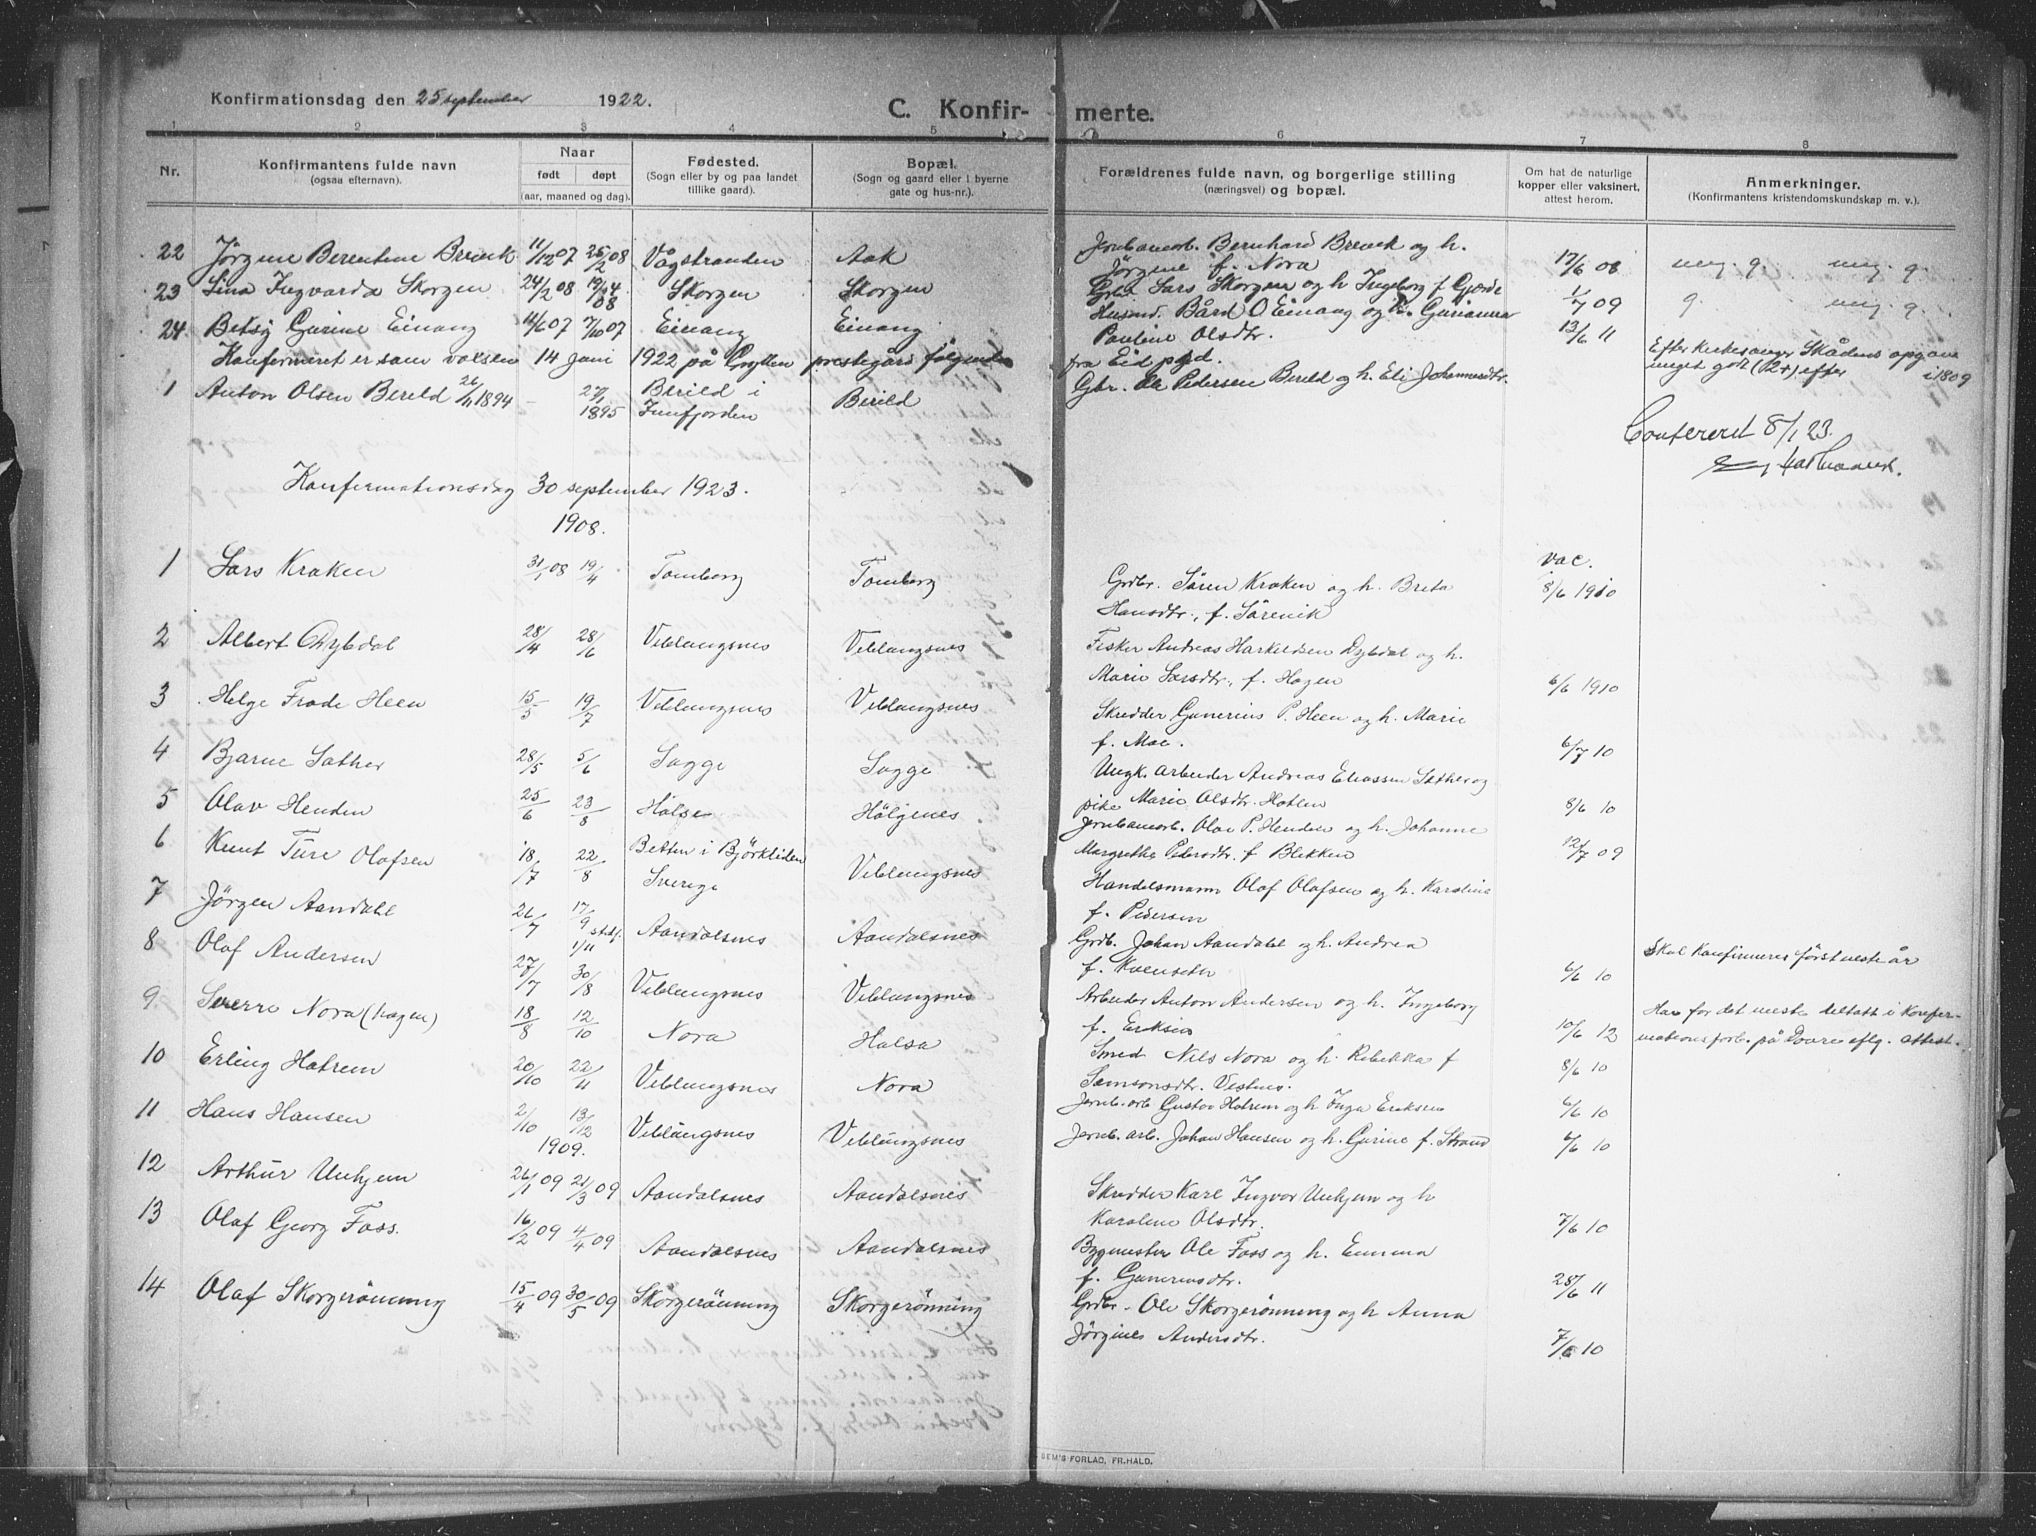 Konfirmationsdag den 25 september 1922.
C. Konfir- merte.
1 2 3 4 5 6 7 8
Nr. Konfirmantens fulde navn (ogsaa efternavn). Naar født døpt (aar, maaned og dag). Fødested. (Sogn eller by og paa landet tillike gaard). Bopæl. (Sogn og gaard eller i byerne gate og hus-nr.). Forældrenes fulde navn, og borgerlige stilling (næringsvei) og bopæl. Om hat de naturlige kopper eller vaksinert, attest herom. Anmerkninger. (Konfirmantens kristendomskundskap m. v.).
22 Jørgine Berentine Brevik 11/12 07 25/2 08 Vågstranden Aak Jernbanearb. Bernhard Brevik og h.
Jörgine f. Nora 17/6 08 meg. g. meg. g.
23 Lina Ingvarda Skorgen 24/2 08 19/4 08 Skorgen Skorgen Gbr. Lars Skorgen og h Ingeborg f Gjerde 1/7 09 g. meg. g.
24 Betsy Gurine Einang 11/6 07 7/10 07 Einang Einang Husmd. Bård O Einang og h. Gurianna
Pauline Olsdtr. 13/6 11
Konfirmeret er som voksen 14 juni 1922 på Grytten prestegård følgende fra Eid pgd. Efter kirkesanger Skådens opgave
1 Anton Olsen Berild 26/11 1894 - 27/1 1895 Berild i Innfjorden Berild Gbr. Ole Pedersen Berild og h. Eli Johannesdtr. meget godt (P2+) efter i 1809
Confereret 8/1 23.
Konfirmationsdag 30 september 1923.
1908.
1 Lars Kroken 31/1 08 19/4 Tomberg Tomberg Grdbr. Sören Kroken og h. Breta
Hansdtr., f. Sörenik vac. 8/6 1910
2 Albert Dybdal 28/4 28/6 Veblungsnes Veblungsnes Fisker Andreas Harkildsen Dybdal og h.
Marie Larsdtr., f. Hagen 6/6 1910
3 Helge Frode Heen 15/5 19/7 Veblungsnes Veblungsnes Skredder Gunerius P. Heen og h. Marie
f. Moe. 6/7 10
4 Bjarne Sather 28/5 5/6 Sogge Sogge Ungk. arbeider Andreas Eliassen Sather og
pike Marie Olsdtr. Hatlen 8/6 10
5 Olav Henden 25/6 23/8 Halse Hålgenes Jernbanearb. Olav P. Henden og h. Johanne
Margrethe Pedersdtr. f Blekken 12/7 09
6 Knut Ture Olafsen 18/7 22/8 Betten i Björkliden Sverige Veblungsnes Handelsmann Olaf Olafsen og h. Karolina
f. Pedersen
7 Jörgen Aandahl 26/7 17/9 stadf. 1/11 Aandalsnes Aandalsnes Grdb. Johan Aandahl og h. Andrea
f. Kvenseth 6/6 10 Skal konfirmeres först neste år
8 Olaf Andersen 27/7 30/8 Veblungsnes Veblungsnes Arbeider Anton Andersen og h. Ingeborg
f. Eriksen 10/6 12 Har for det meste deltatt i konfir-
mationsforb. på Dovre iflg. attest.
9 Sverre Nora (hagen) 18/8 12/10 Nora Halsa Smed Nils Nora og h. Rebekka f
Samsonsdtr. Vestnes. 8/6 10
10 Erling Hatrem 20/10 22/11 Veblungsnes Nora Jernb. arb. Gustav Hatrem og h Inga Eriksen 6/6 10
11 Hans Hansen 2/10 13/12 Veblungsnes Veblungsnes Jernb. arb. Johan Hansen og h. Gurine f. Strand 6/6 10
1909.
12 Arthur Unhjem 26/1 09 21/3 09 Aandalsnes Aandalsnes Skredder Karl Ingvar Unhjem og h
Karoline Olsdtr. 7/6 10
13 Olaf Georg Foss. 16/2 09 4/4 09 Aandalsnes Aandalsnes Bygmester Ole Foss og h. Emma
f. Gunerusdtr. 28/6 11
14 Olaf Skorgerönning 15/4 09 30/5 09 Skorgerönning Skorgerönning Grdbr. Ole Skorgerönning og h Anna
Jörgines Andersdtr. 7/6 10
SEM'S FORLAG, FR.HALD.